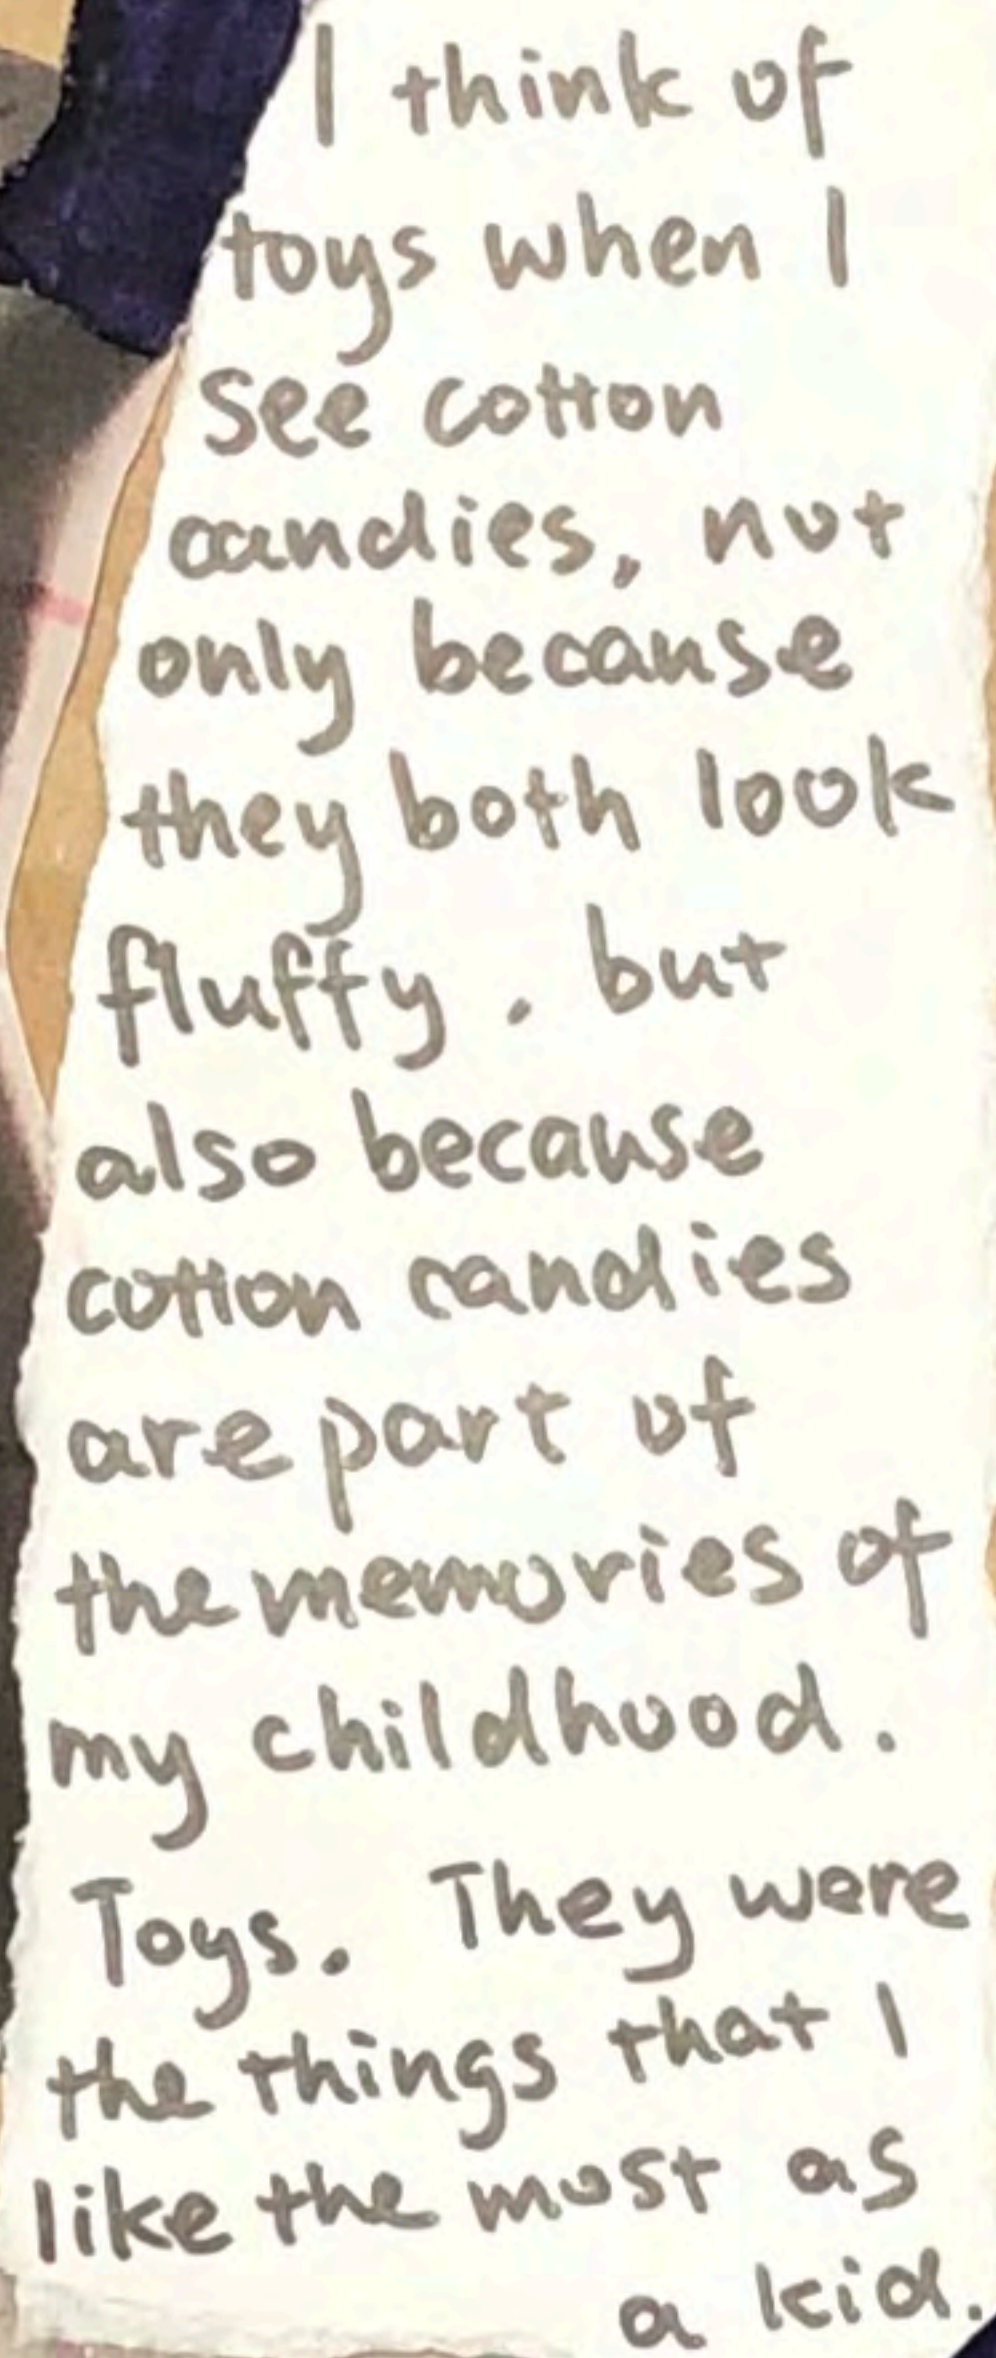 I think of
toys when I
see cotton
candies, not
only because
they both look
fluffy, but
also because
cotton candies
are part of
the memories of
my childhood.
Toys. They were
the things that I
like the most as
a kid.